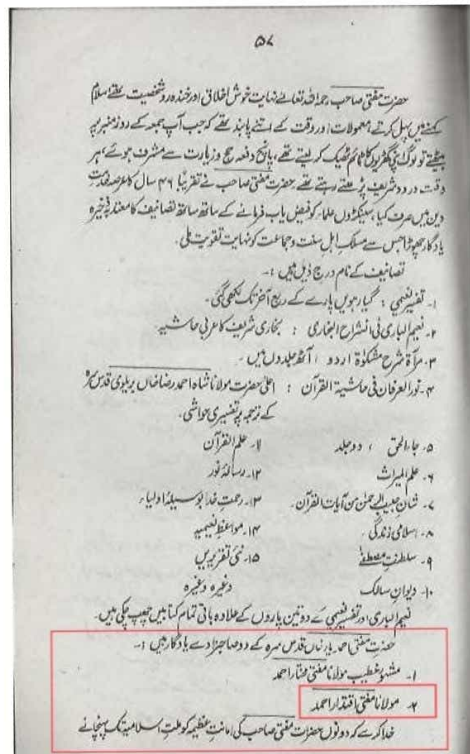 ۵۷
حضرت مفتی صاحب رحمہ اللہ تعالےٰ نہایت خوش اخلاق اور خندہ رو شخصیت تھے اسلام
کہنے میں پہل کرتے، معمولات اور وقت کے اتنے پابند تھے کہ جب آپ جمعہ کے روز منبر پر
بیٹھتے تو لوگ اپنی گھڑیوں کا ٹائم ٹھیک کر لیتے تھے، پانچ دفعہ حج و زیارت سے مشرف ہوئے، ہر
وقت درود شریف پڑھتے رہتے تھے حضرت مفتی صاحب نے تقریباً ۴۶ سال کا عرصہ خدمتِ
دین میں صرف کیا، سینکڑوں علماء کو فیض یاب فرمانے کے ساتھ ساتھ تصانیف کا معتد بہ ذخیرہ
یادگار چھوڑا جس سے مسلک اہل سنت و جماعت کو نہایت تقویت ملی.
تصانیف کے نام درج ذیل ہیں :-
۱- تفسیر نعیمی : گیارہویں پارے کے ربع آخر تک لکھی گئی.
۲- نعیم الباری فی انشراح البخاری : بخاری شریف کا عربی حاشیہ
۳- مرآۃ شرح مشکوٰۃ اردو ، آٹھ جلدوں میں.
۴- نور العرفان فی حاشیۃ القرآن : اعلیٰ حضرت مولانا شاہ احمد رضا خاں بریلوی قدس سرہ
کے ترجمہ پر تفسیری حواشی.
۵- جاء الحق ، دو جلد ۱۱- علم القرآن
۶- علم المیراث ۱۲- رسالہ نور
۷- شان حبیب الرحمٰن من آیات القرآن. ۱۳- رحمت خدا بوسیلۂ اولیاء
۸- اسلامی زندگی ۱۴- مواعظ نعیمیہ
۹- سلطنتِ مصطفےٰ ۱۵- نئی تقریریں
۱۰- دیوانِ سالک وغیرہ وغیرہ
نعیم الباری اور تفسیر نعیمی کے دو تین پاروں کے علاوہ باقی تمام کتابیں چھپ چکی ہیں.
حضرت مفتی احمد یار خاں قدس سرہ کے دو صاحبزادے یادگار ہیں :-
۱- مشہور خطیب مولانا مفتی مختار احمد
۲- مولانا مفتی اقتدار احمد
خدا کرے کہ دونوں حضرات مفتی صاحب کی امانتِ عظیمہ کو ملتِ اسلامیہ تک پہنچانے